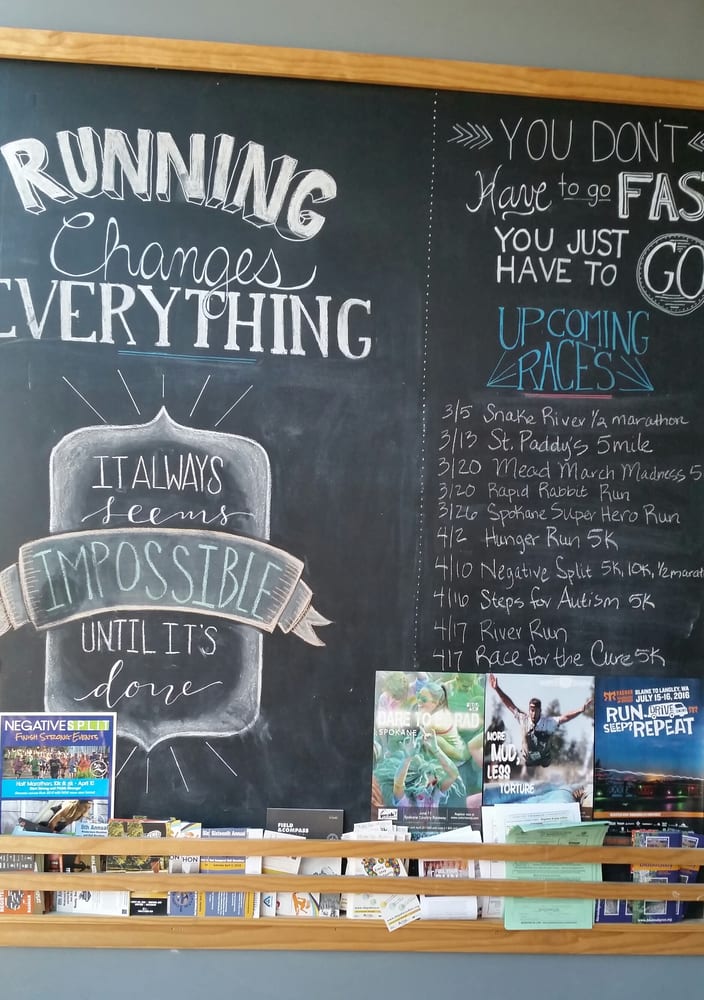 RUNNING
Changes
EVERYTHING
IT ALWAYS
seems
IMPOSSIBLE
UNTIL IT'S
done
YOU DON'T
Have to go FAS
YOU JUST
HAVE TO GO
UPCOMING
RACES
3/5 Snake River 1/2 marathon
3/13 St. Paddy's 5 mile
3/20 Mead March Madness 5
3/20 Rapid Rabbit Run
3/26 Spokane Super Hero Run
4/2 Hunger Run 5K
4/10 Negative Split 5K, 10K, 1/2 marat
4/16 Steps for Autism 5K
4/17 River Run
4/17 Race for the Cure 5K
NEGATIVE SPLIT
FINISH STRONG EVENTS
Half Marathon, 10k & 5k - April 10
8th Annual
DARE TO BE RAD
SPOKANE
MORE
MUD,
LESS
TORTURE
RAGNAR
BLAINE TO LANGLEY, WA
JULY 15-16, 2016
RUN. DRIVE.
SLEEP? REPEAT
FIELD
&COMPASS